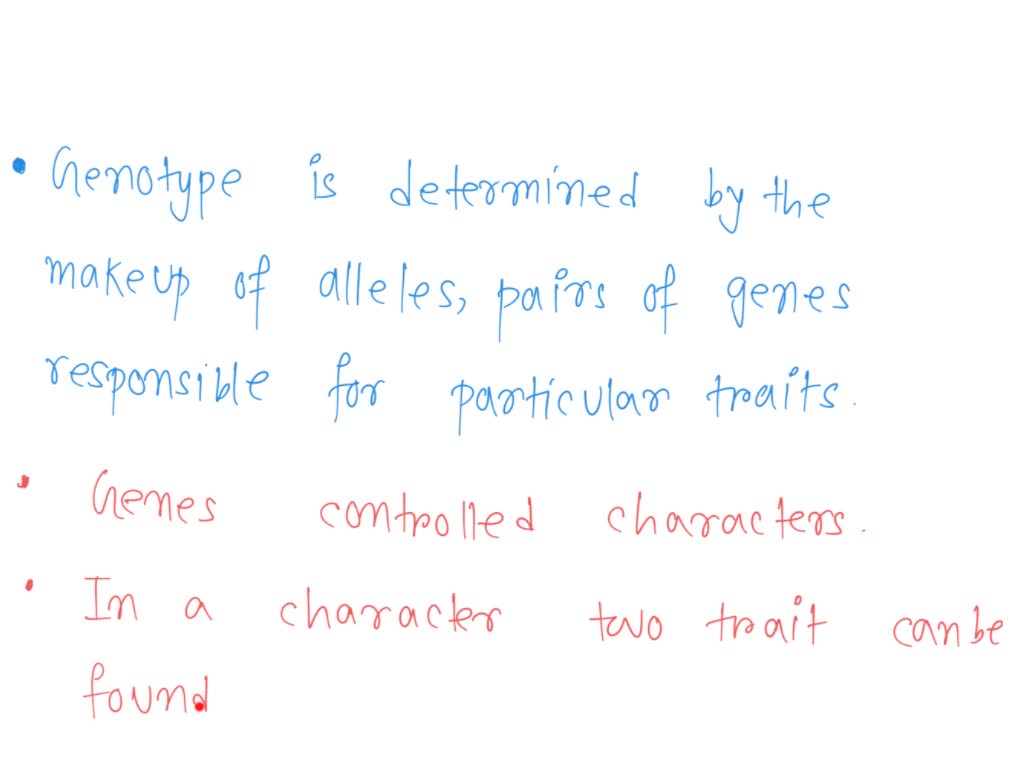 • Genotype is determined by the
makeup of alleles, pairs of genes
responsible for particular traits.
• Genes controlled characters.
• In a character two trait can be
found